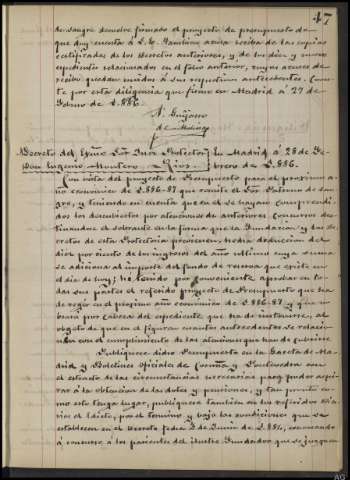 47
de Sangre devuelve firmado el proyecto de presupuesto de
que doy cuenta á S. E. Tambien acusa recibo de las copias
certificadas de los Decretos anteriores, y de los diez y nueve
expedientes relacionados en el folio anterior, cuyos acuses de
recibo quedan unidos á sus respectivos antecedentes. Cons-
te por esta diligencia que firmo en Madrid á 27 de
Febrero de 1.886.
Decreto del Excmo Sor Juez Protector En Madrid á 28 de Fe-
Don Eugenio Montero Rios. brero de 1.886.
Con vista del proyecto de Presupuesto para el proximo a-
ño económico de 1.886-87 que remite el Sor Paterno de San-
gre, y teniendo en cuenta que en el se hayan comprendi-
dos los descubiertos por atenciones de anteriores Concursos des-
tinandose el sobrante en la forma que la Fundacion y los De-
cretos de esta Protectoria previenen, hecha deduccion del
diez por ciento de los ingresos del año ultimo cuya suma
se adiciona al importe del fondo de reserva que existe en
el dia de hoy; he tenido por conveniente aprobar en to-
das sus partes el referido proyecto de Presupuesto que ha
de regir en el proximo año económico de 1.886-87 y que ser-
birá por cabeza del expediente que ha de instruirse, al
objeto de que en el figuren cuantos antecedentes se relacio-
nen con el cumplimiento de las atenciones que han de cubrirse
Publiquese dicho Presupuesto en la Gaceta de Ma-
drid, y Boletines Oficiales de Coruña y Pontevedra con
el estado de las circunstancias necesarias para poder aspi-
rar á la obtencion de las dotes y pensiones, y tan pronto co-
mo esto tenga lugar, publiquese tambien en los referidos Dia-
rios el Edicto, por el termino y bajo las condiciones que se
establecen en el Decreto fecha 2 de Junio de 1.884, convocando
á concurso á los parientes del ilustre Fundador que se juzguen